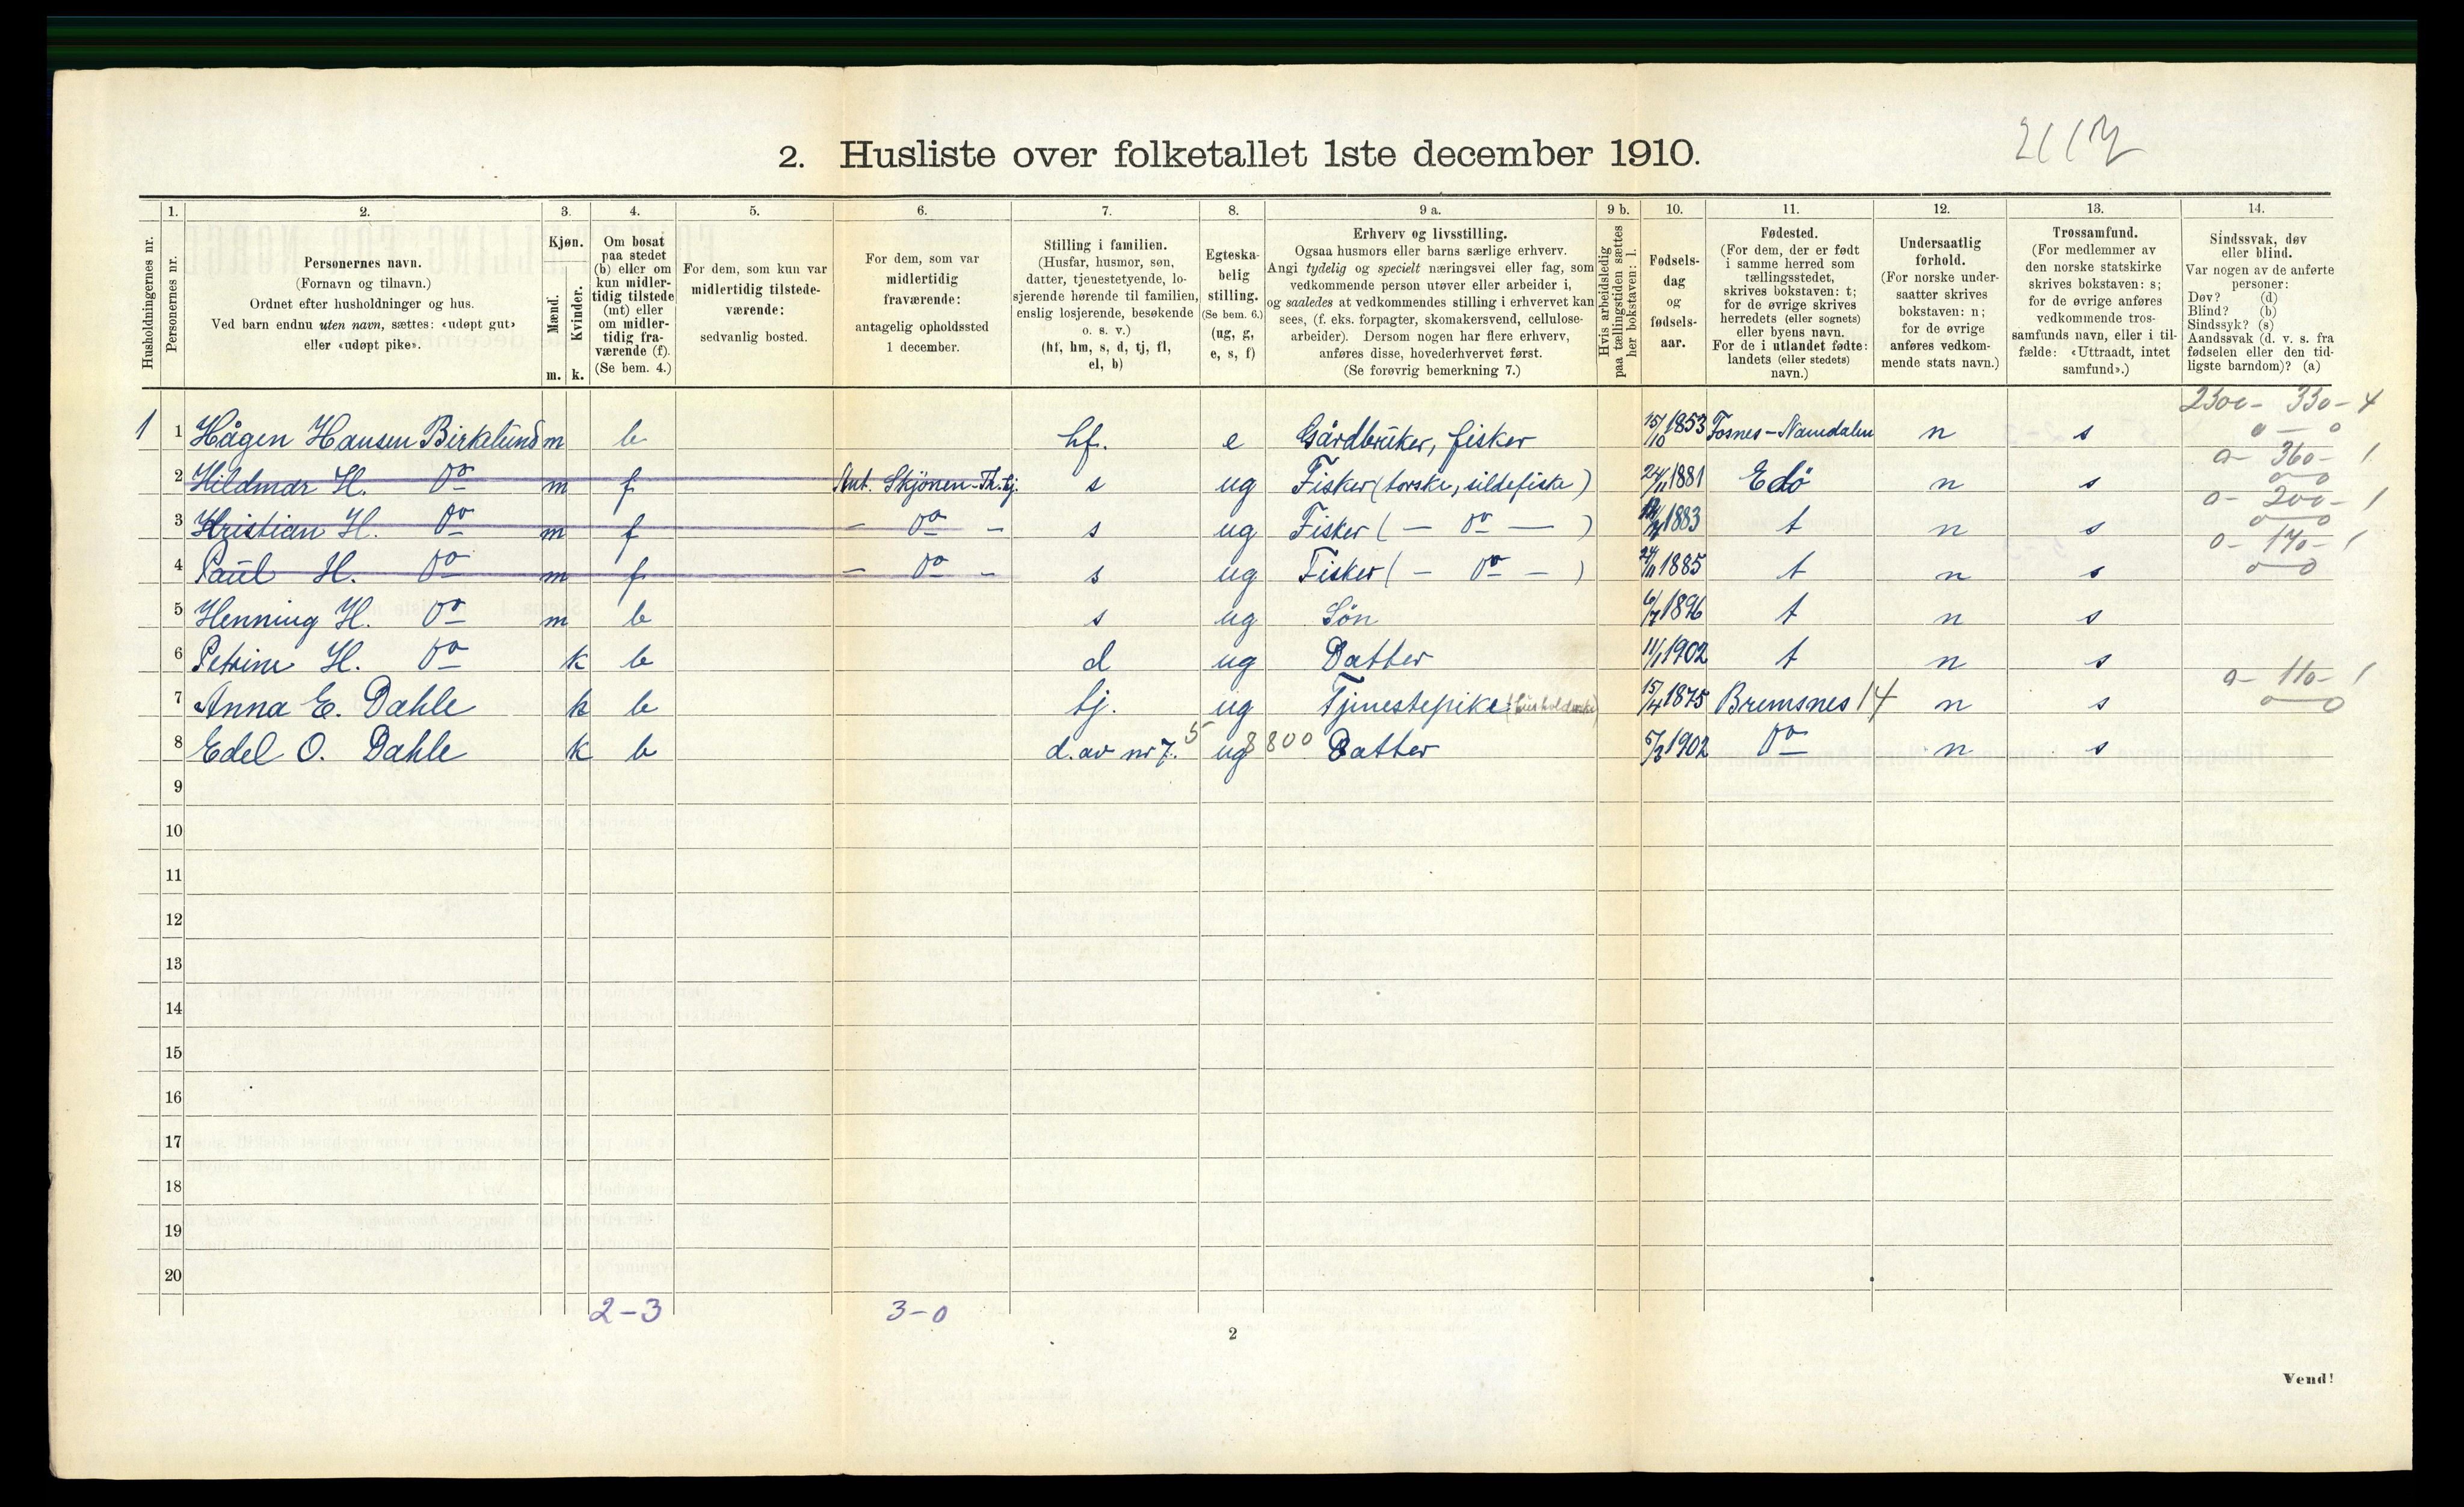 2. Husliste over folketallet 1ste december 1910.
Husholdningernes nr.
1. Personernes nr.
2. Personernes navn. (Fornavn og tilnavn.) Ordnet efter husholdninger og hus. Ved barn endnu uten navn, sættes: «udøpt gut» eller «udøpt pike».
3. Kjøn. Mænd. m. Kvinder. k.
4. Om bosat paa stedet (b) eller om kun midler-tidig tilstede (mt) eller om midler-tidig fra-værende (f). (Se bem. 4.)
5. For dem, som kun var midlertidig tilstede-værende: sedvanlig bosted.
6. For dem, som var midlertidig fraværende: antagelig opholdssted 1 december.
7. Stilling i familien. (Husfar, husmor, søn, datter, tjenestetyende, lo-sjerende hørende til familien, enslig losjerende, besøkende o. s. v.) (hf, hm, s, d, tj, fl, el, b)
8. Egteska-belig stilling. (Se bem. 6.) (ug, g, e, s, f)
9 a. Erhverv og livsstilling. Ogsaa husmors eller barns særlige erhverv. Angi tydelig og specielt næringsvei eller fag, som vedkommende person utøver eller arbeider i, og saaledes at vedkommendes stilling i erhvervet kan sees, (f. eks. forpagter, skomakersvend, cellulose-arbeider). Dersom nogen har flere erhverv, anføres disse, hovederhvervet først. (Se forøvrig bemerkning 7.)
9 b. Hvis arbeidsledig paa tællingstiden sættes her bokstaven: l.
10. Fødsels-dag og fødsels-aar.
11. Fødested. (For dem, der er født i samme herred som tællingsstedet, skrives bokstaven: t; for de øvrige skrives herredets (eller sognets) eller byens navn. For de i utlandet fødte: landets (eller stedets) navn.)
12. Undersaatlig forhold. (For norske under-saatter skrives bokstaven: n; for de øvrige anføres vedkom-mende stats navn.)
13. Trossamfund. (For medlemmer av den norske statskirke skrives bokstaven: s; for de øvrige anføres vedkommende tros-samfunds navn, eller i til-fælde: «Uttraadt, intet samfund».)
14. Sindssvak, døv eller blind. Var nogen av de anførte personer: Døv? (d) Blind? (b) Sindssyk? (s) Aandssvak (d. v. s. fra fødselen eller den tid-ligste barndom)? (a)
2300 - 330 - 4
1 1 Hågen Hansen Birkelund m b hf. e Gårdbruker, fisker 15/10 1853 Fosnes - Namdalen n s 0 - 0
0 - 360 - 1
2 Hildmar H. Do m f Ant. Skjönen - Th.hj. s ug Fisker (torske, sildefiske) 1881 Edö n s 0 - 0
0 - 200 - 1
3 Kristian H. Do m f - Do - s ug Fisker ( - Do - ) 1883 t n s 0 - 0
0 - 170 - 1
4 Paul H. Do m f - Do - s ug Fisker ( - Do - ) 24/11 1885 t n s 0 - 0
5 Henning H. Do m b s ug Sön 6/7 1896 t n s
6 Petrine H. Do k b d ug Datter 11/1 1902 t n s
0 - 110 - 1
7 Anna E. Dahle k b tj. ug Tjenestepike (husholderske) 15/4 1875 Bremsnes 14 n s 0 - 0
8 Edel O. Dahle k b d. av nr 7. 5 ug 8800 Datter 5/3 1902 Do n s
9
10
11
12
13
14
15
16
17
18
19
20
2 - 3 3 - 0
2
Vend!